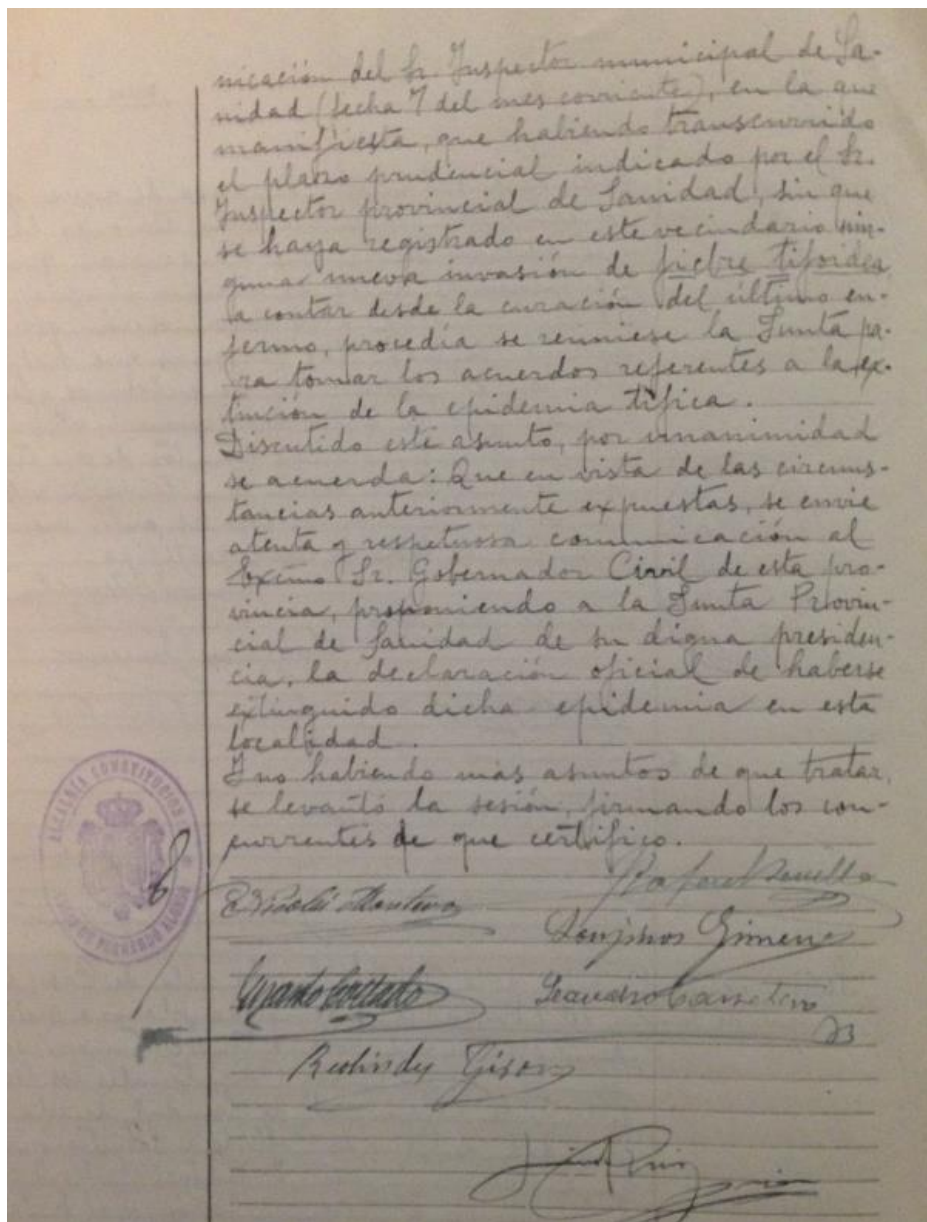 nicación del Sr. Inspector municipal de Sa-
nidad (fecha 7 del mes corriente), en la que
manifiesta, que habiendo transcurrido
el plazo prudencial indicado por el Sr.
Inspector provincial de Sanidad, sin que
se haya registrado en este vecindario nin-
guna nueva invasión de fiebre tifoidea,
a contar desde la curación del último en-
fermo, procedía se reuniese la Junta pa-
ra tomar los acuerdos referentes a la ex-
tinción de la epidemia tífica.
Discutido este asunto, por unanimidad
se acuerda: Que en vista de las circuns-
tancias anteriormente expuestas, se envie
atenta y respetuosa comunicación al
Excmo Sr. Gobernador Civil de esta pro-
vincia, proponiendo a la Junta Provin-
cial de Sanidad de su digna presiden-
cia, la declaración oficial de haberse
extinguido dicha epidemia en esta
localidad.
Y no habiendo mas asuntos de que tratar,
se levantó la sesión, firmando los con-
currentes de que certifico.
ALCALDÍA CONSTITUCIONAL
Montero
Rafael
Gimeno
Leandro